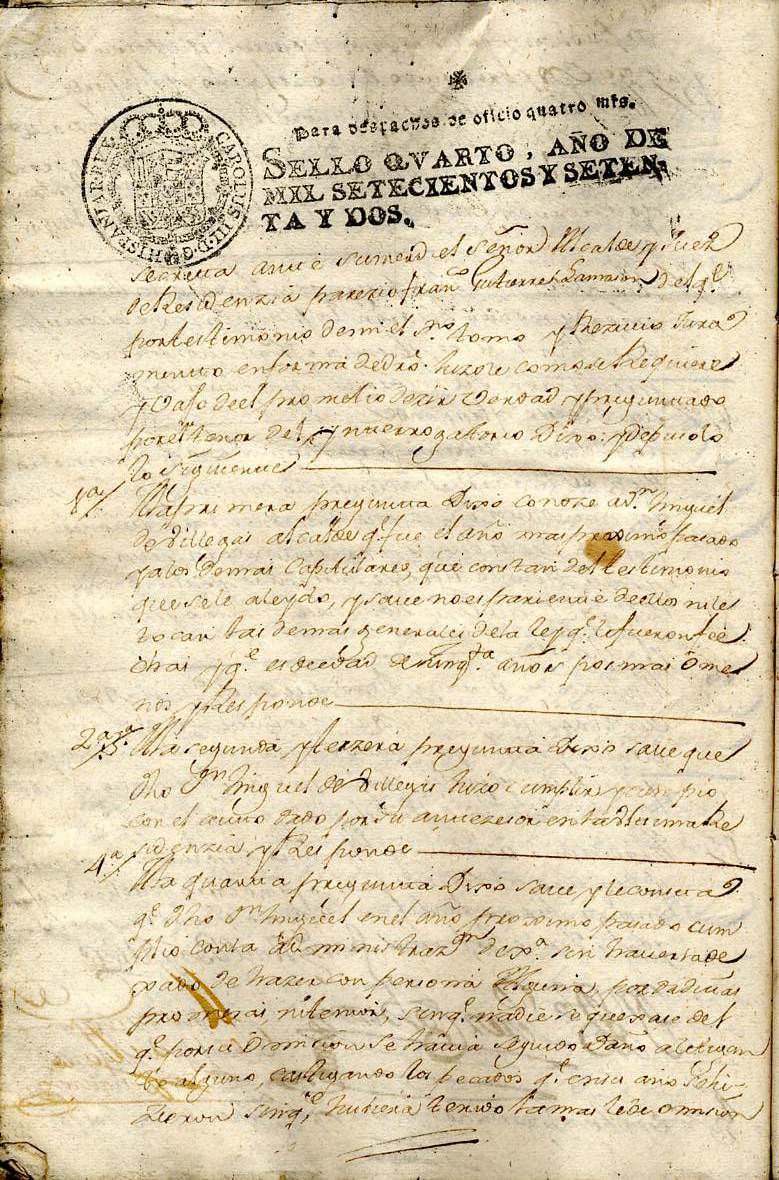 Para despachos de oficio quatro mrs.
SELLO QVARTO, AÑO DE
MIL SETECIENTOS Y SETEN-
TA Y DOS.
CAROLUS III D G HISPANIAR REX
secreta ante su merd el señor Alcalde y Juez
de Residenzia parezio Fran.co Gutierrez Lamason del q.e
por testimonio de mi el s.no tomo y Rezivio Jura
mento en forma de dro. hizole como se Requiere
y vajo de el prometio dezir verdad y preguntado
por el tenor del ynterrogatorio Dixo y depuso
lo siguiente
1a A la primera pregunta Dixo conoze a D.n Miguel
de Villegas alcalde q.e fue el año mas proximo pasado
y a los demas Capitulares, que constan del testimonio
que se le a leydo, y save no es pariente de ellos ni le
tocan las demas generales de la ley q.e le fueron fe
chas y q.e es de edad de zinq.ta años poco mas o me
nos y Responde
2a y 3a A la segunda y terzera pregunta Dixo save que
dho D.n Miguel de Villegas hizo cumplir y cumplio
con el auto dado por su antezesor en la ultima Re
sidenzia y Responde
4a A la quarta pregunta Dixo save y le consta
q.e dho D.n Miguel en el año proximo pasado cum
plio con la administraz.on de xa. sin haver la de
xado de hazer con persona alguna, por dadivas
promesas ni temor, sin q.e nadie se quexase del
q.e por su omision se havia seguido daño a litigan
te alguno, castigando los pecados q.e en su año se hi-
zieron sin q.e hubiera tenido la mas leve omision